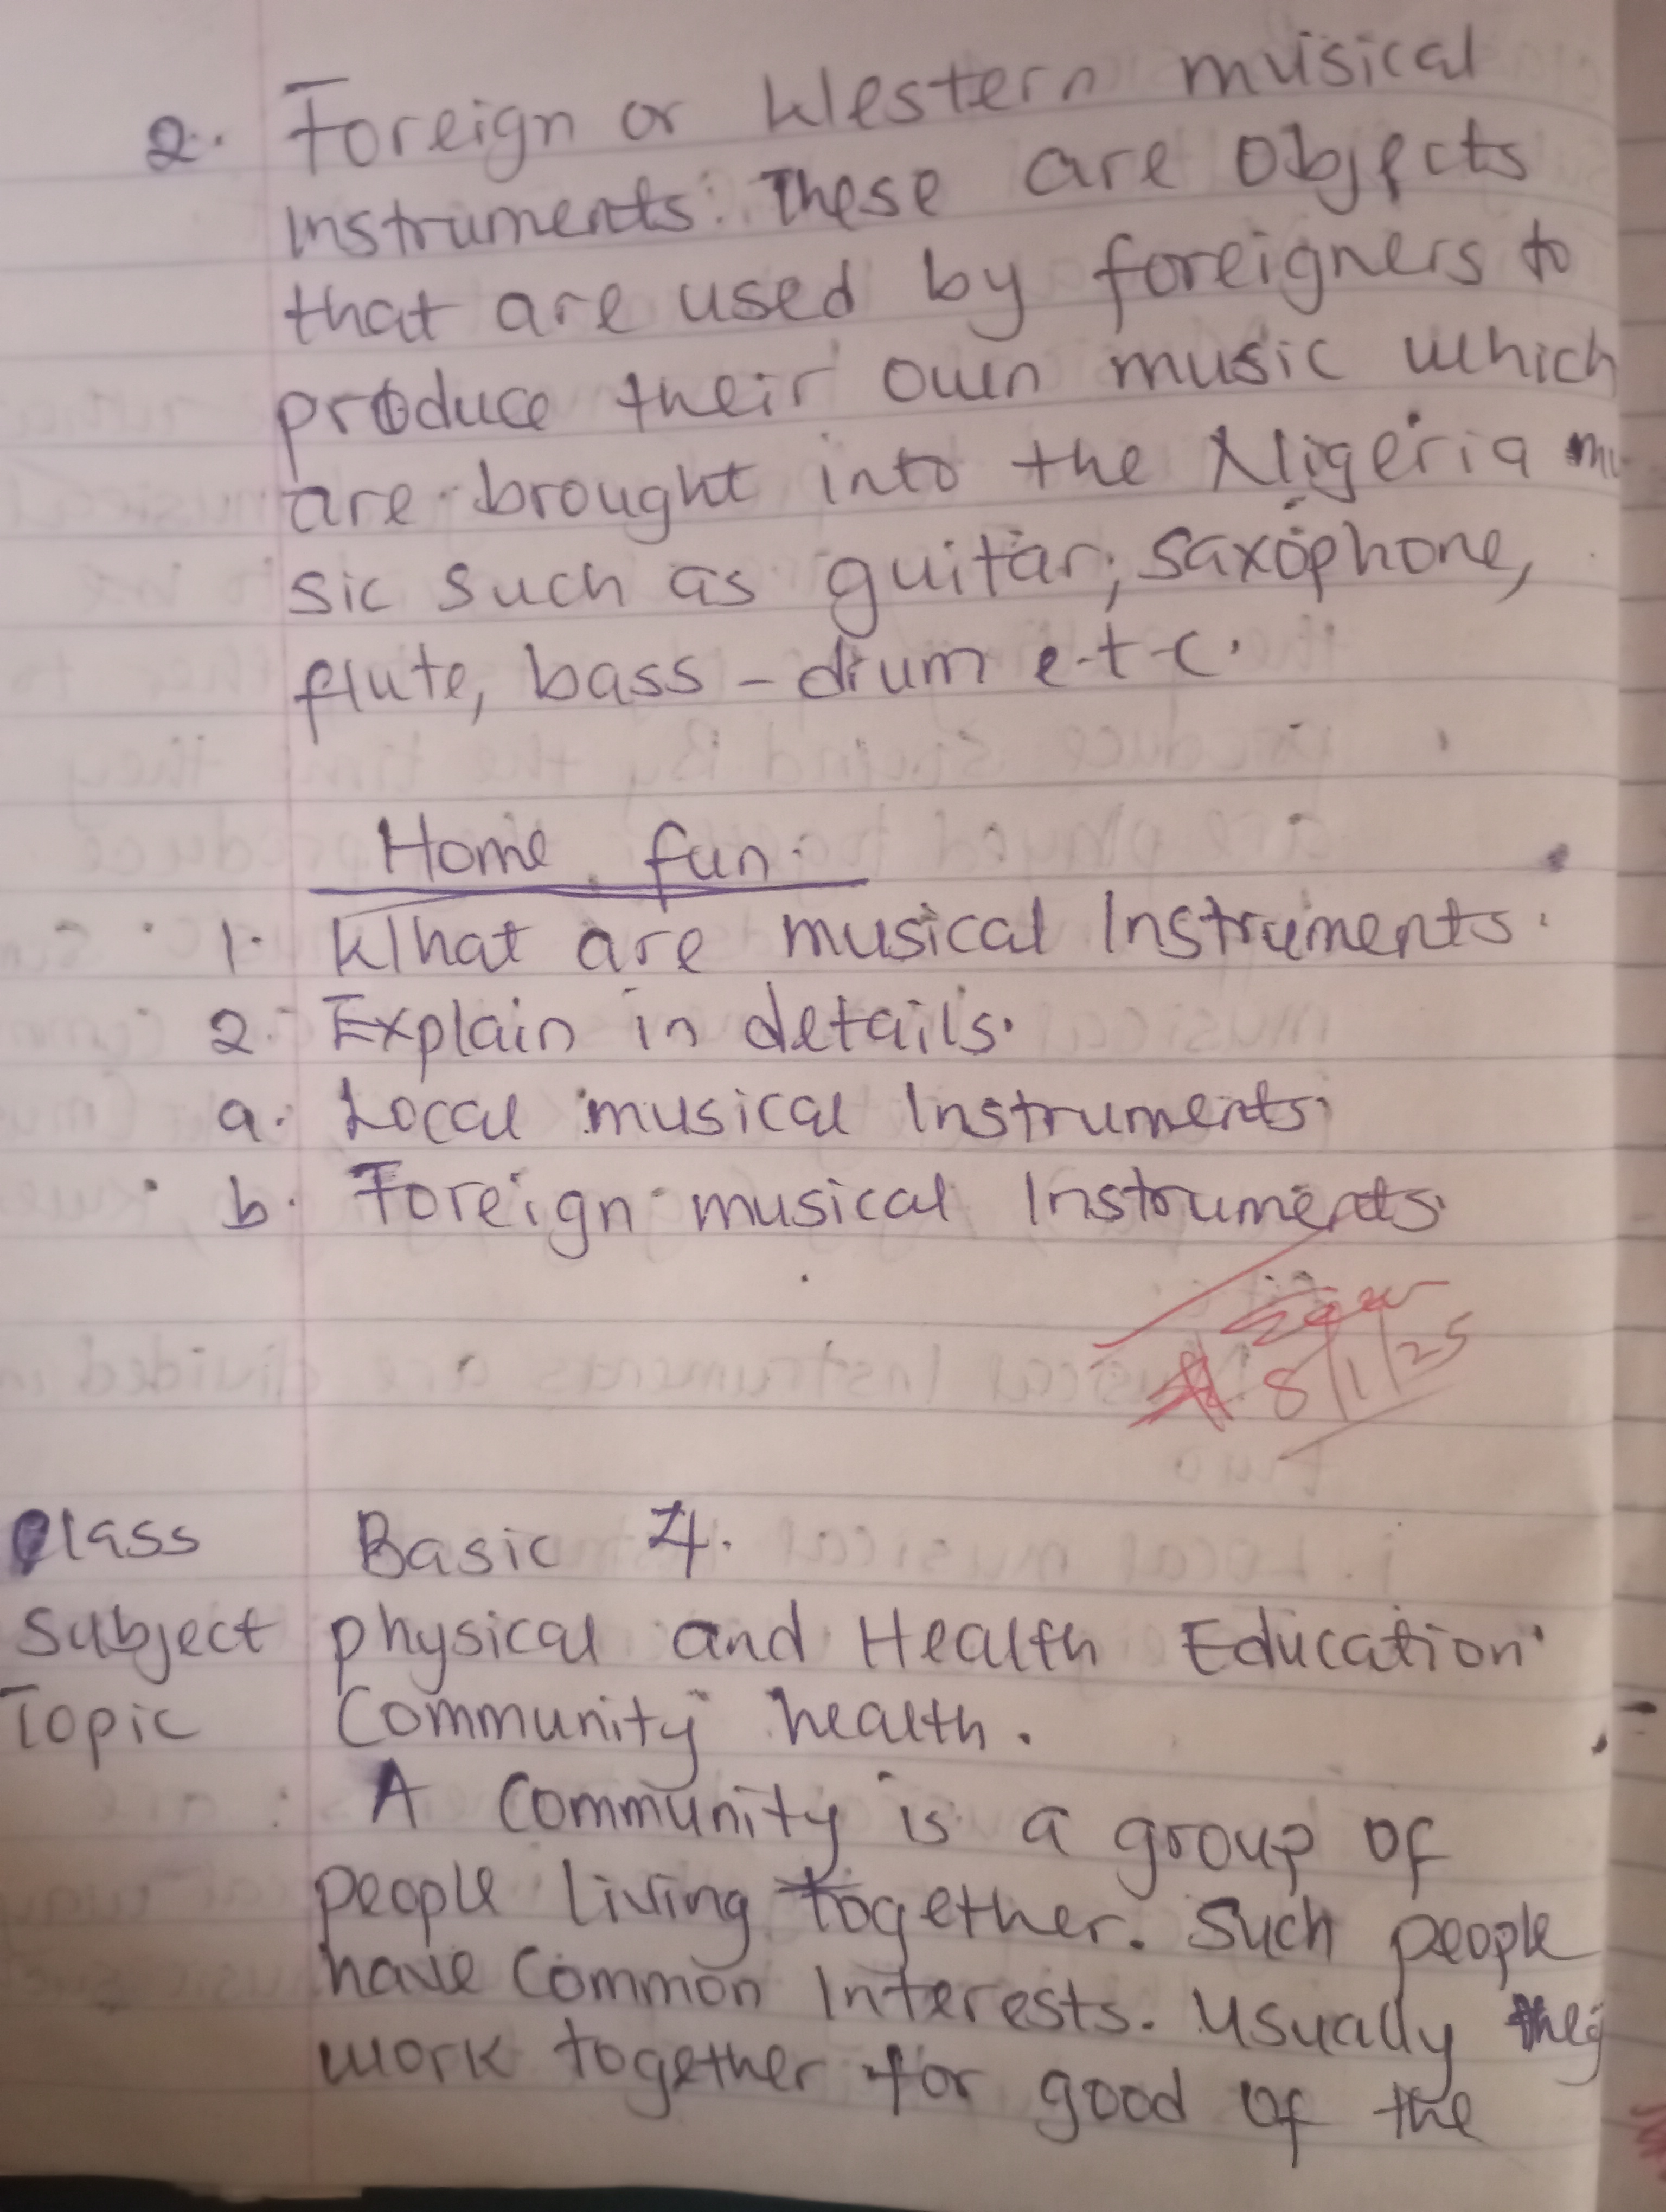 2. Foreign or Western musical
Instruments: These are Objects
that are used by foreigners to
produce their own music which
are brought into the Nigeria mu
sic such as guitar, saxophone,
flute, bass - drum e.t.c.
Home fun.
1. What are musical Instruments.
2. Explain in details.
a. Local musical Instruments
b. Foreign musical Instruments.
8/1/25
Class Basic 4.
Subject physical and Health Education.
Topic Community health.
A Community is a group of
people living together. Such people
have Common Interests. Usually they
work together for good of the